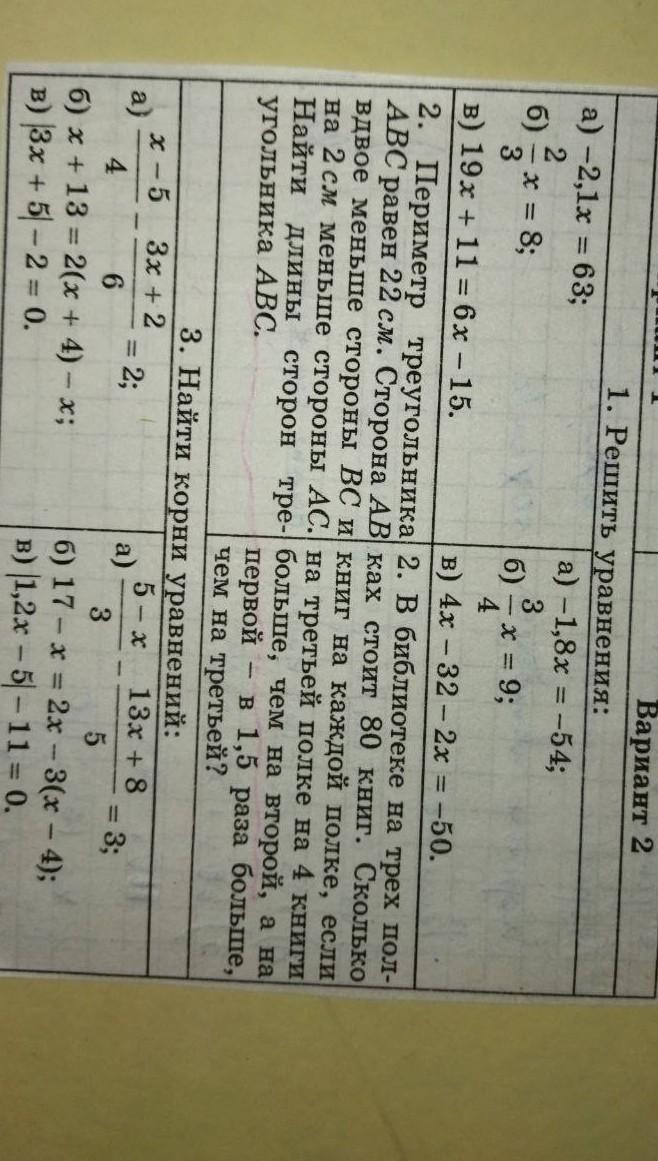 Вариант 2
1. Решить уравнения:
а) –2,1x = 63;
б) 2/3 x = 8;
в) 19x + 11 = 6x – 15.
а) –1,8x = –54;
б) 3/4 x = 9;
в) 4x – 32 – 2x = –50.
2. Периметр треугольника
ABC равен 22 см. Сторона AB
вдвое меньше стороны BC и
на 2 см меньше стороны AC.
Найти длины сторон тре-
угольника ABC.
2. В библиотеке на трех пол-
ках стоит 80 книг. Сколько
книг на каждой полке, если
на третьей полке на 4 книги
больше, чем на второй, а на
первой – в 1,5 раза больше,
чем на третьей?
3. Найти корни уравнений:
а) (x – 5)/4 – (3x + 2)/6 = 2;
б) x + 13 = 2(x + 4) – x;
в) |3x + 5| – 2 = 0.
а) (5 – x)/3 – (13x + 8)/5 = 3;
б) 17 – x = 2x – 3(x – 4);
в) |1,2x – 5| – 11 = 0.